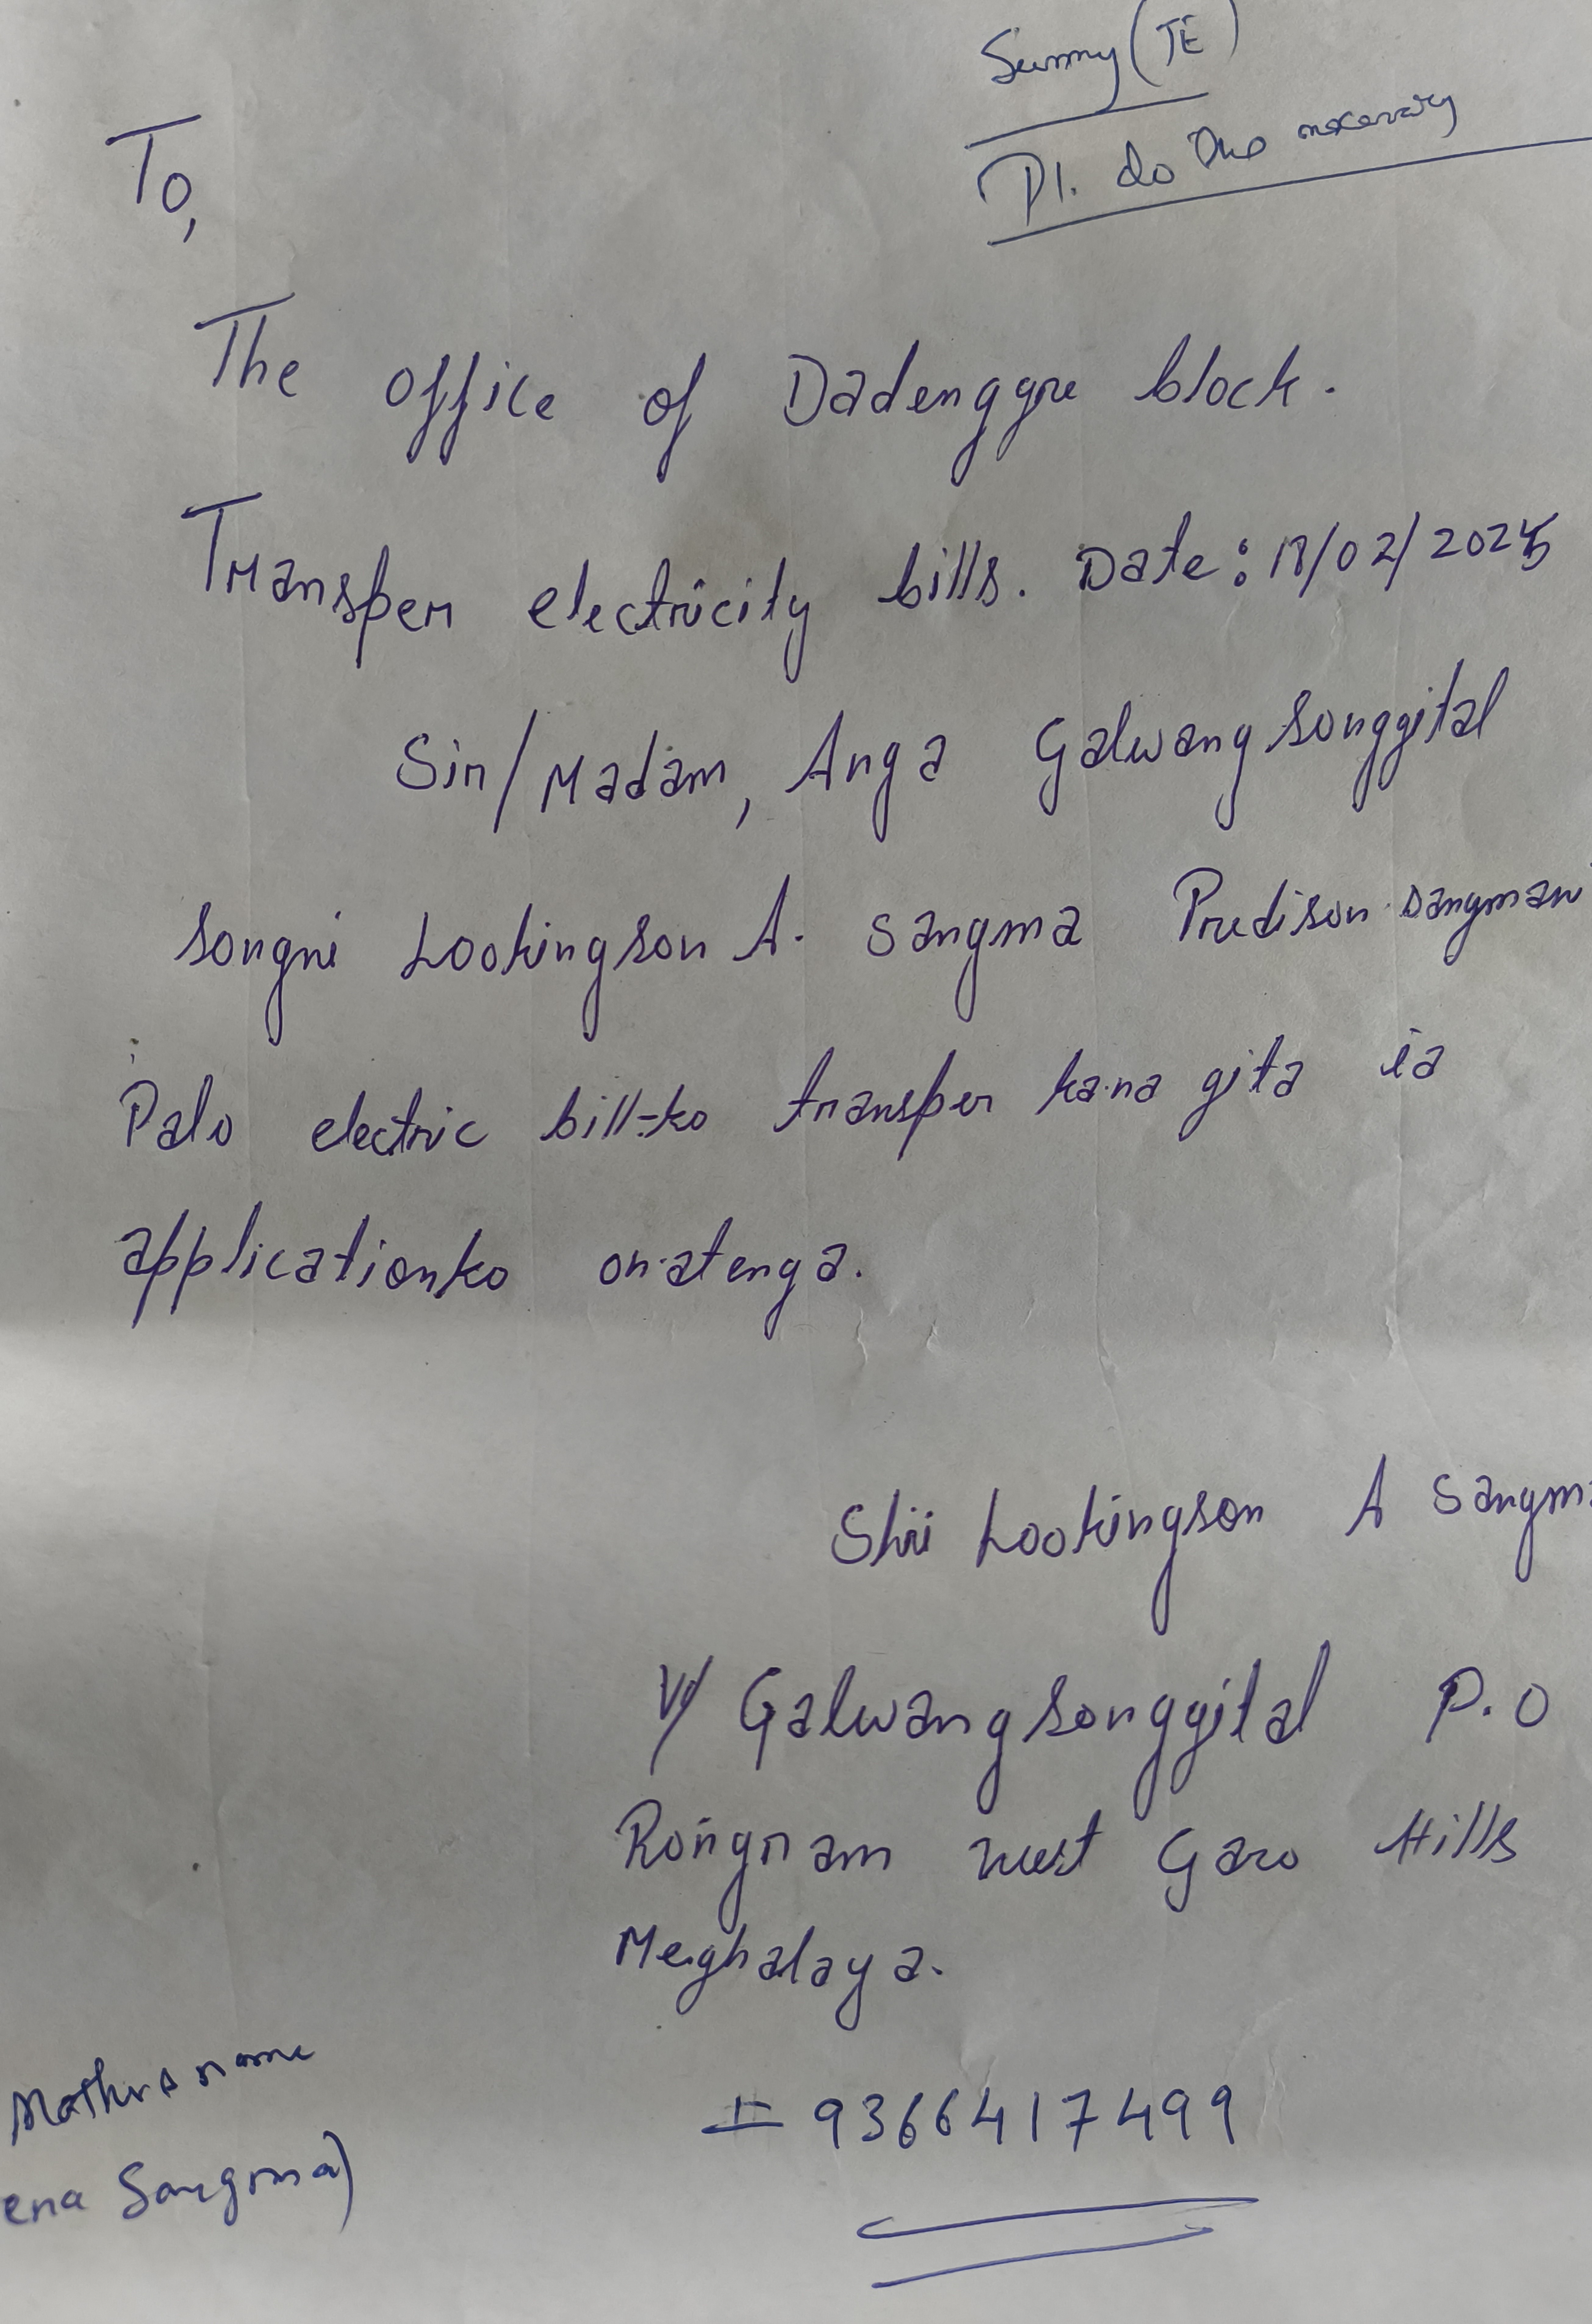 Sunny (JE)
Pl. do the necessary
To,
The office of Dadenggre block.
Transper electricity bills. Date: 18/02/2025
Sir/Madam, Anga Galwangsonggital
songni Lookingson A. Sangma Predison Sangmani
Palo electric bill-ko transper ka·na gita ia
applicationko on·atenga.
Shri Lookingson A Sangma
V/ Galwangsonggital P.O
Rongram west Garo Hills
Meghalaya.
9366417499
Mothers name
ena Sangma)